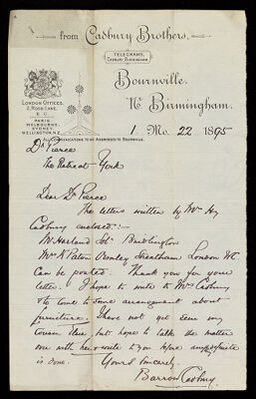 from Cadbury Brothers,
TELEGRAMS,
CADBURY BIRMINGHAM
Bournville,
Nr Birmingham.
LONDON OFFICES,
E.C.
PARIS
MELBOURNE
SYDNEY
WELLINGTON, N.Z.
ALL COMMUNICATIONS TO BE ADDRESSED TO BOURNVILLE.
1 Mo. 22 1895
Dr Pierce
The Retreat York
Dear Dr Pierce
The letters written by Mr Hy
Cadbury enclosed:-
Mr Harland St Bridlington
Mrs K Paton Streatham London
Can be posted. Thank you for your
letter. I hope to write to Mrs Cadbury
& to come to some arrangement about
furniture. I have not yet seen my
Cousin but hope to talk the matter
over with her & write to you before any
is done. Yours sincerely
Barrow Cadbury.